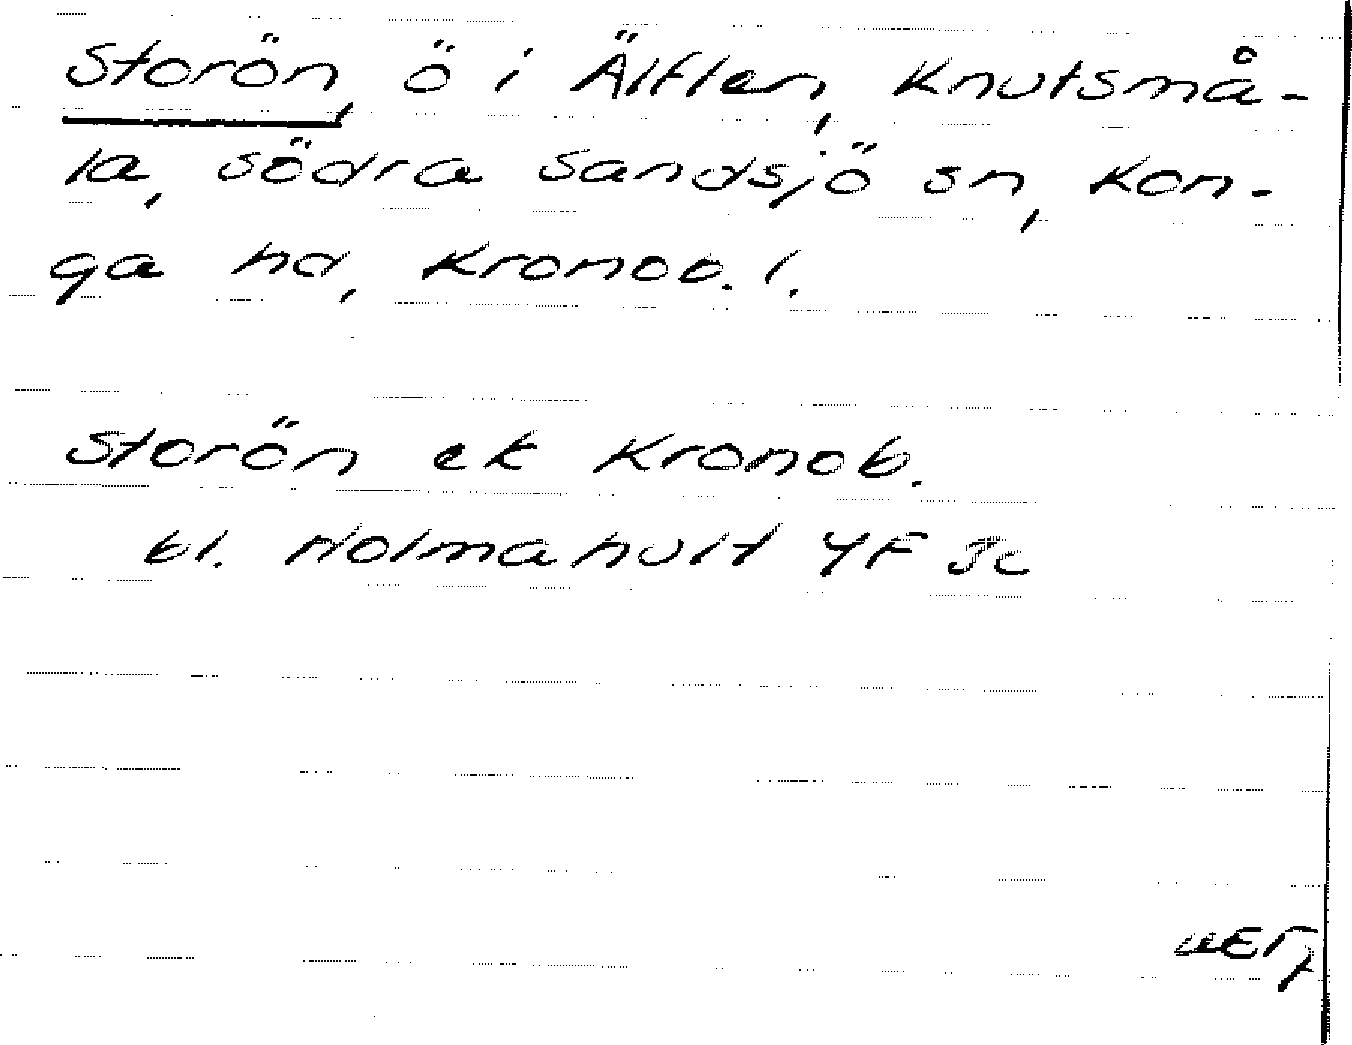 Storön, ö i Älften, Knutsmå-
la, södra Sandsjö sn, Kon-
ga hd, Kronob. l.
Storön ek Kronob.
bl. Holmahult 4F Jc